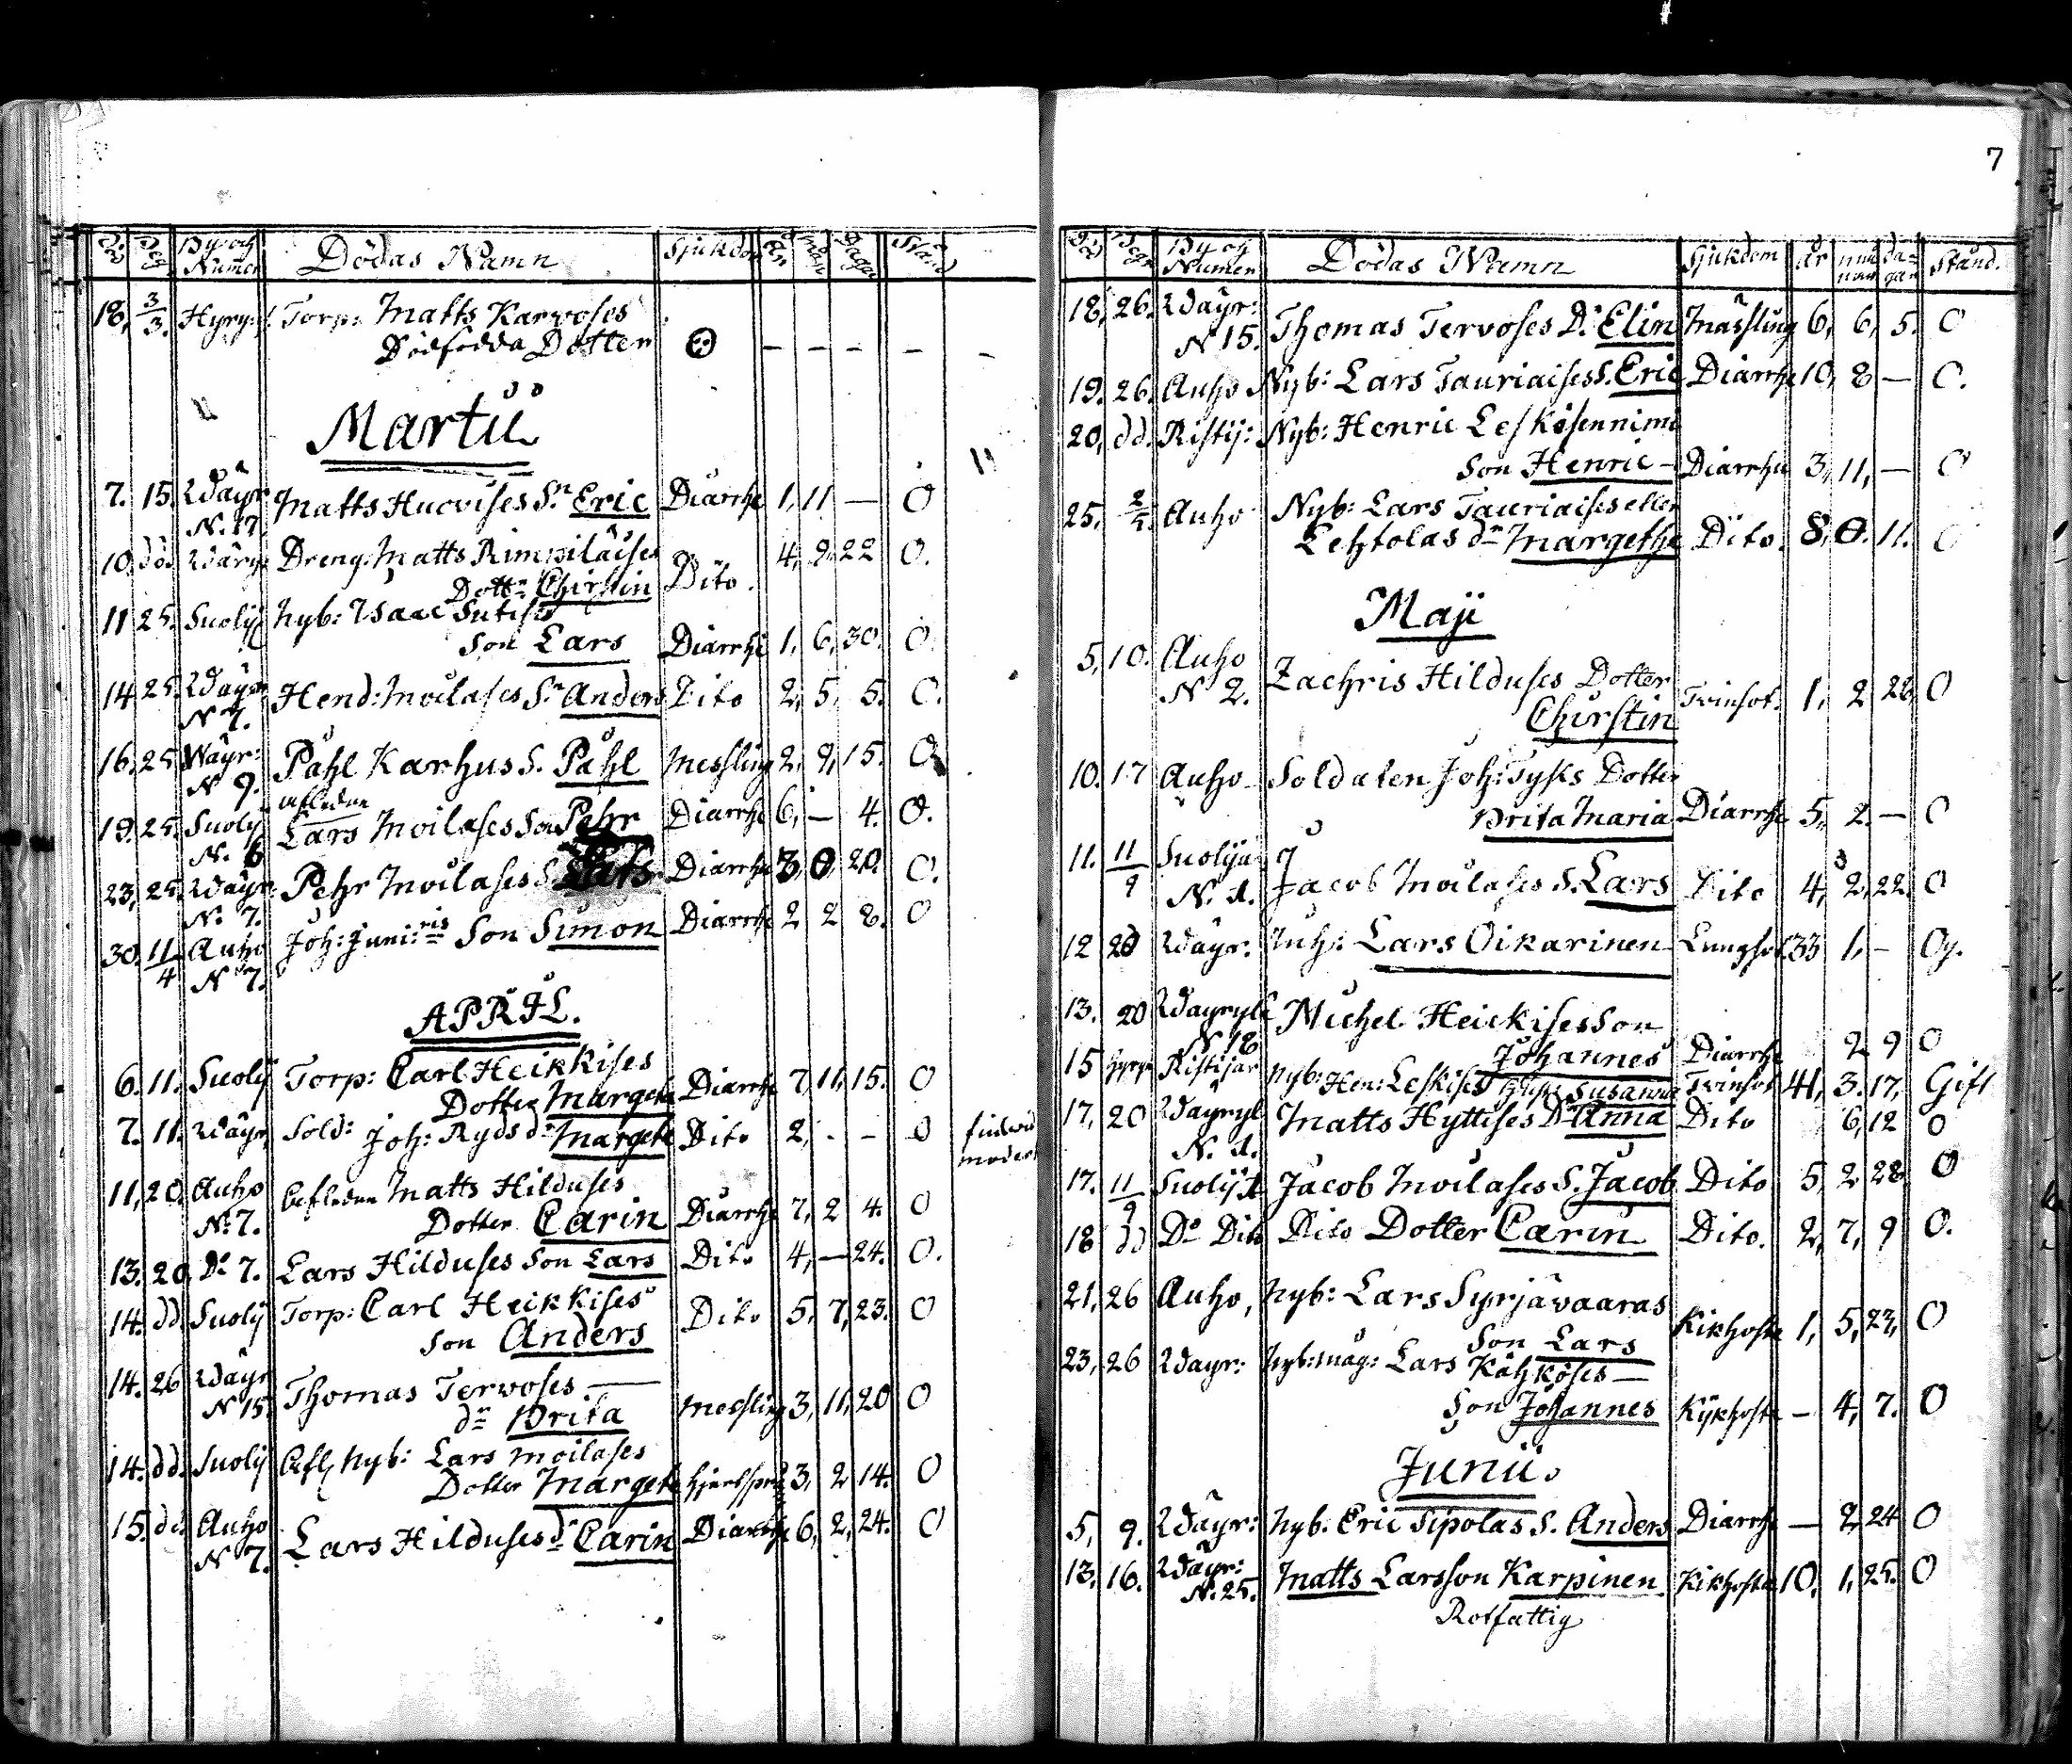 7
By och Numer Dödas Namn Sjukdom Stånd
18, 3/3. Hyryns: Torp: Matts Karvoses
Dödfödda Dotter — — — — —
Martii
7. 15. Wäyr Matts Hucvises Sn Eric Diarrhe 1, 11 — O
N. 17.
10. dd. Wäyr Dreng. Matts Rimpiläises 4, 9, 22 O.
Dottr Chirstin Dito.
11 25. Suolij Nyb: Isaac Sutises
Son Lars Diarrhe 1, 6, 30. O.
14. 25. Wäyr Hend: Moilases Sn Anders Dito 2, 5, 5. O.
N 7.
16. 25 Wäyr: Påhl Karhus S. Påhl Messling 2, 9, 15. O
N 9.
afledne
19. 25. Suolij Lars Moilases Son Pehr Diarrhe 6, — 4. O.
N. 6
23, 25. Wäyr: Pehr Moilases S. Lars Diarrhe 3, 0, 20. O.
N. 7.
30. 11/4 Auho Joh: Juni:ris Son Simon Diarrhe 2 2 8. O
N 7.
APRIL.
6. 11. Suolij Torp: Carl Heikkises
Dotter Margeta Diarrhe 7, 11, 15. O
7. 11. Wäyr Sold: Joh: Ryds dr Margeta Dito 2, . – O
11, 20. Auho Aflednen Matts Hilduses
N: 7. Dotter Carin Diarrhe 7, 2 4. O
13. 20. Do 7. Lars Hilduses Son Lars Dito 4, — 24. O.
14. dd. Suolij Torp: Carl Heikkises
Son Anders Dito 5, 7, 23. O
14. 26 Wäyr Thomas Tervoses —
N 15. dr Brita Messling 3, 11, 20 O
14. dd. Suolij Afl. Nyb: Lars Moilases
Dotter Margeta 3, 2 14. O
15. dd. Auho Lars Hilduses dr Carin Diarrhe 6, 2, 24. O
N 7.
By och Numer Dödas Namn Sjukdom år må nad da= gar Stånd.
18, 26. Wäyr:
N 15. Thomas Tervoses Dr Elin Mässling 6, 6, 5. O
19. 26. Auho Nyb: Lars Tauriaises S. Eric Diarrhe 10, 8 — O.
20, dd. Ristij: Nyb: Henric Leskisennimi
Son Henric – Diarrhe 3, 11, — O
25, 2/5. Auho Nyb: Lars Tauriaises eller
Lehtolas dr Margethe Dito. 8, 0. 11. O
Maji
5, 10. Auho Zachris Hilduses Dotter
N 2. Chirstin Tvinsot. 1, 2 28, O
10. 17 Auho Soldaten Joh: Tysks Dotter
Brita Maria Diarrhe 5, 2. — O
11. 11/9 Suolija Jacob Moilases S. Lars Dito 4, 2, 22. O
N. 1.
12 20 Wäyr: Inh: Lars Oikarinen Lungsot 33 1, – Og.
13. 20 Wäyryle Michel Heickises Son
N 18 Johannes Diarrhe 2 9 O
15 Ristijär Nyb: Hen: Leskises Susanna Tvinsot 41, 3. 17, Gift
17, 20 Wäyryl Matts Hyttises Dr Anna Dito 6, 12 O
N. 1.
17. 11/9 Suolij 1 Jacob Moilases S. Jacob Dito 5, 2 28. O
18 dd Do Dito Dito Dotter Carin Dito. 2, 7, 9 O.
21, 26 Auho, Nyb: Lars Syrjävaaras
Son Lars Kikhosta 1, 5, 23, O
23, 26 Wäyr: Nyb: måg: Lars Kähköses —
Son Johannes Kykhosta – 4, 7. O
Junii.
5, 9. Wäyr: Nyb: Eric Sipolas S. Anders Diarrhe — 2, 24 O
13. 16. Wäyr: Matts Larsson Karpinen Kikhosta 10, 1, 25. O
N. 25. Rotfattig